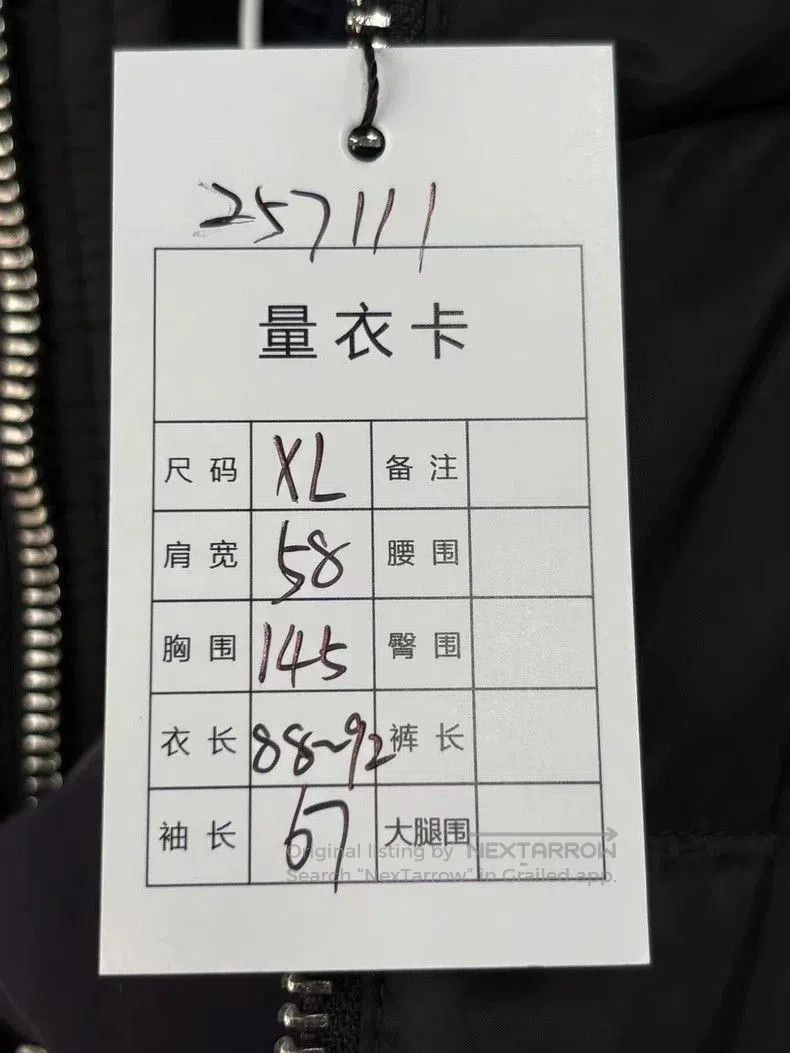 257111
量衣卡
尺码 XL 备注
肩宽 58 腰围
胸围 145 臀围
衣长 88~92 裤长
袖长 67 大腿围
Original listing by NEXTARROW
Search "NexTarrow" in Grailed app.